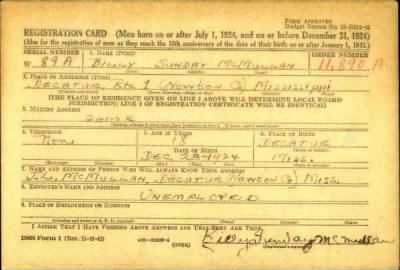 FORM APPROVED
REGISTRATION CARD (Men born on or after July 1, 1924, and on or before December 31, 1924)
(Also for the registration of men as they reach the 18th anniversary of the date of their birth on or after January 1, 1943.)
SERIAL NUMBER 1. NAME (Print) ORDER NUMBER
W 89 A BILLY SUNDAY McMULLAN 11,890 A
2. PLACE OF RESIDENCE (Print)
DECATUR, Rte 1 NEWTON Co MISSISSIPPI
(THE PLACE OF RESIDENCE GIVEN ON LINE 2 ABOVE WILL DETERMINE LOCAL BOARD
JURISDICTION; LINE 2 OF REGISTRATION CERTIFICATE WILL BE IDENTICAL)
3. MAILING ADDRESS
SAME
4. TELEPHONE 5. AGE IN YEARS 6. PLACE OF BIRTH
NONE 18 DECATUR
DATE OF BIRTH
DEC 28 1924 MISS.
7. NAME AND ADDRESS OF PERSON WHO WILL ALWAYS KNOW YOUR ADDRESS
McMULLAN, DECATUR (NEWTON Co) MISS.
8. EMPLOYER'S NAME AND ADDRESS
UNEMPLOYED
9. PLACE OF EMPLOYMENT OR BUSINESS
I AFFIRM THAT I HAVE VERIFIED ABOVE ANSWERS AND THAT THEY ARE TRUE.
DSS Form 1 (Rev. 11-16-42) (OVER) Billy Sunday McMullan